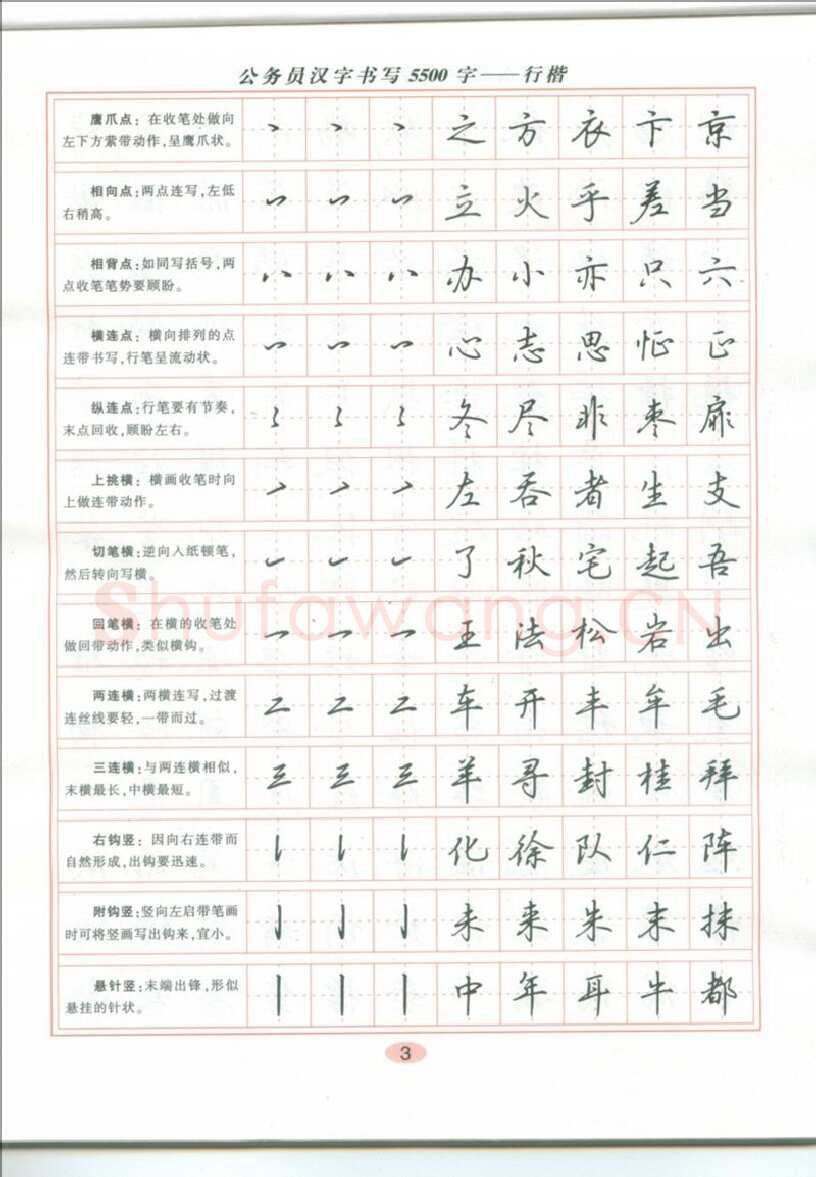 公务员汉字书写5500字——行楷
鹰爪点：在收笔处做向
左下方萦带动作，呈鹰爪状。
之 方 衣 卞 京
相向点：两点连写，左低
右稍高。
立 火 乎 差 当
相背点：如同写括号，两
点收笔笔势要顾盼。
办 小 亦 只 六
横连点：横向排列的点
连带书写，行笔呈流动状。
心 志 思 怔 正
纵连点：行笔要有节奏，
末点回收，顾盼左右。
冬 尽 非 枣 扉
上挑横：横画收笔时向
上做连带动作。
左 吞 者 生 支
切笔横：逆向入纸顿笔，
然后转向写横。
了 秋 宅 起 吾
回笔横：在横的收笔处
做回带动作，类似横钩。
王 法 松 岩 出
两连横：两横连写，过渡
连丝线要轻，一带而过。
车 开 丰 牟 毛
三连横：与两连横相似，
末横最长，中横最短。
羊 寻 封 桂 拜
右钩竖：因向右连带而
自然形成，出钩要迅速。
化 徐 队 仁 阵
附钩竖：竖向左启带笔画
时可将竖画写出钩来，宜小。
未 来 朱 末 抹
悬针竖：末端出锋，形似
悬挂的针状。
中 年 耳 牛 都
Shufawang.CN
3